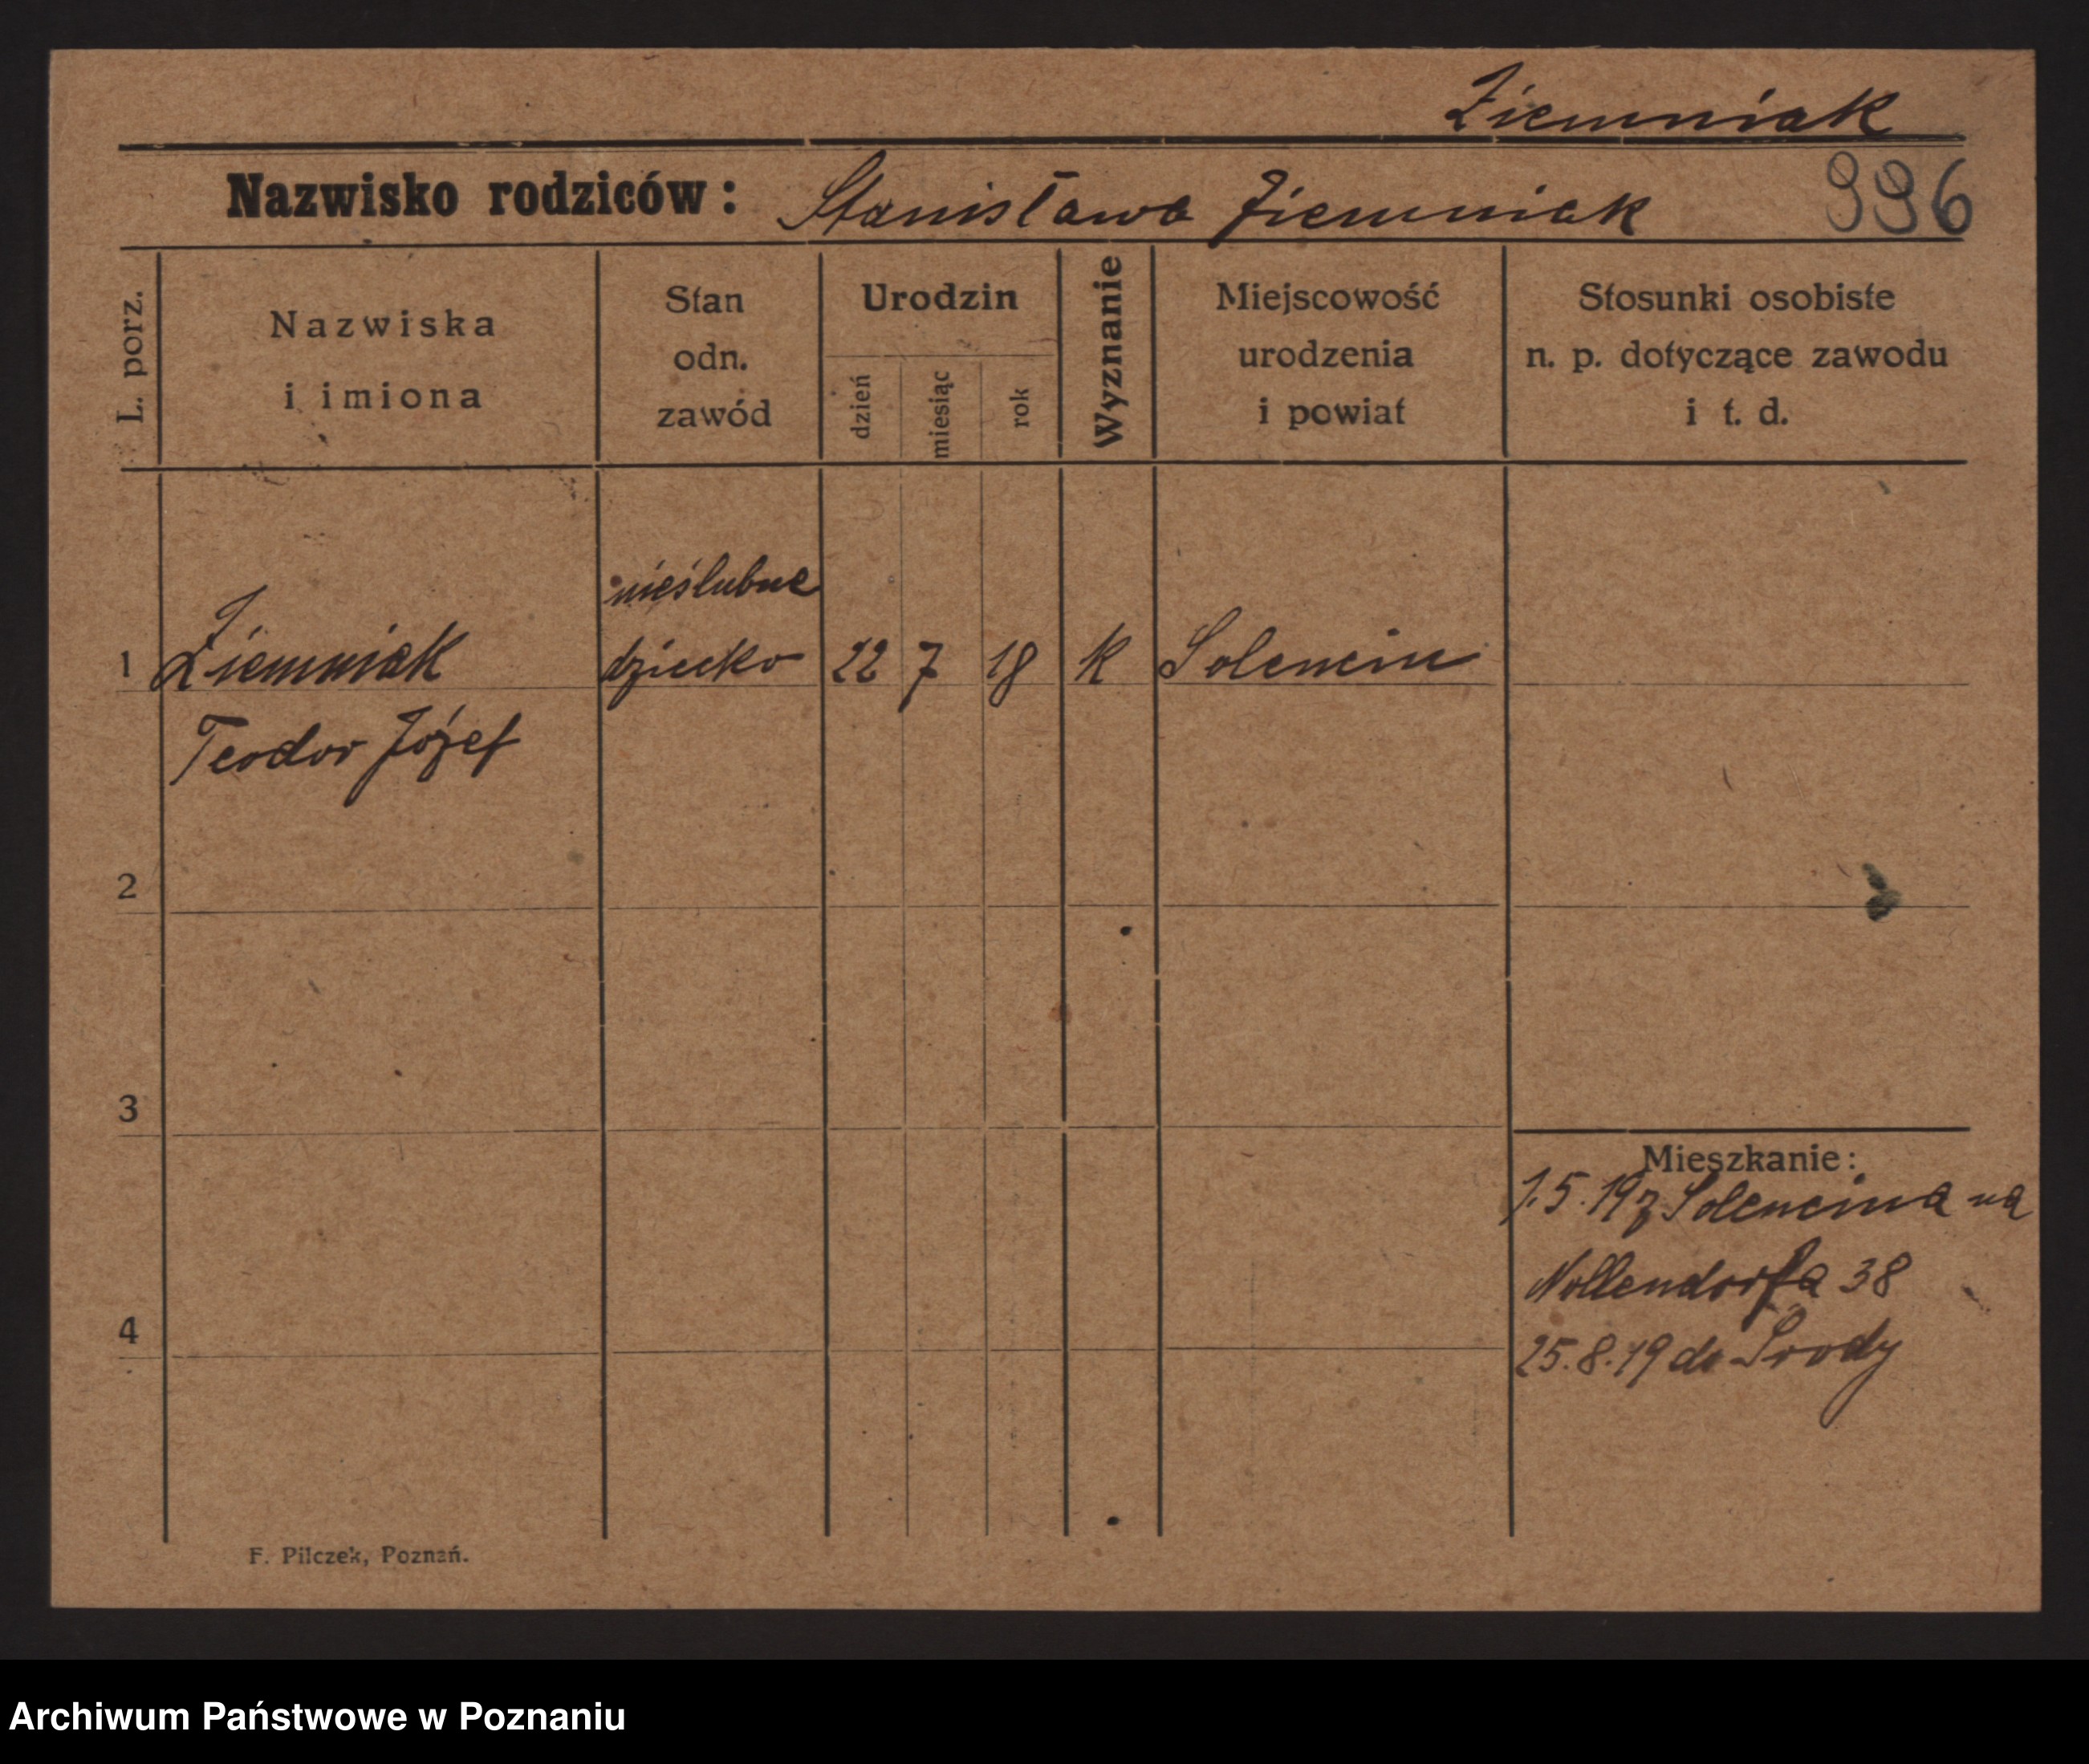 Ziemniak
Nazwisko rodziców: Stanisława Ziemniak 996
L. porz.
Nazwiska
i imiona
Stan
odn.
zawód
Urodzin
dzień
miesiąc
rok
Wyznanie
Miejscowość
urodzenia
i powiat
Stosunki osobiste
n. p. dotyczące zawodu
i t. d.
nieślubne
1 Ziemniak dziecko 22 7 18 k Solencin
Teodor Józef
2
3
Mieszkanie:
1.5.19 z Solencina na
Nollendorfa 38
4
25.8.19 do Środy
F. Pilczek, Poznań.
Archiwum Państwowe w Poznaniu